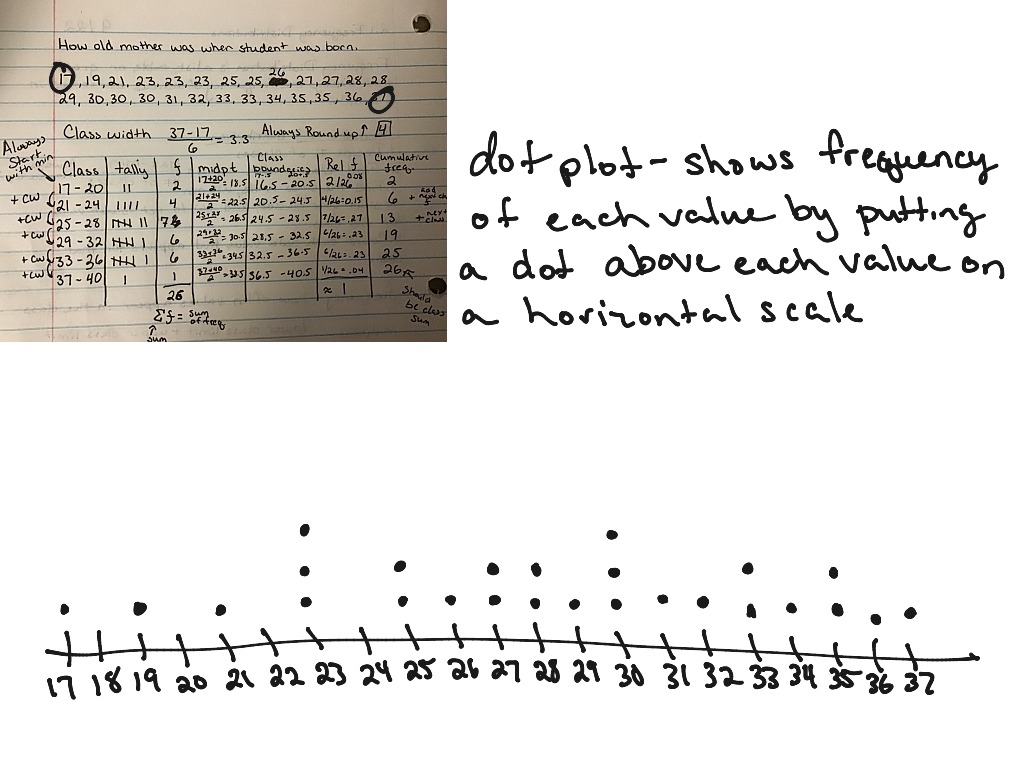 How old mother was when student was born.
17, 19, 21, 23, 23, 23, 25, 25, 26, 27, 27, 28, 28
29, 30, 30, 30, 31, 32, 33, 33, 34, 35, 35, 36, 37
Class width 37-17/6 = 3.3 Always Round up ↑ 4
Always start with min
Class tally f midpt Class boundaries Rel f Cumulative freq.
17-20 11 2 17+20/2 = 18.5 16.5-20.5 2/26 0.08 2
+CW 21-24 1111 4 21+24/2 = 22.5 20.5-24.5 4/26=0.15 6
+CW 25-28 7 25+28/2 = 26.5 24.5-28.5 7/26=.27 13
+CW 29-32 6 29+32/2 = 30.5 28.5-32.5 6/26=.23 19
+CW 33-36 6 33+36/2 = 34.5 32.5-36.5 6/26=.23 25
+CW 37-40 1 1 37+40/2 = 38.5 36.5-40.5 1/26=.04 26
26 ≈ 1
Should be class sum
Σf = sum of freq
sum
dot plot - shows frequency
of each value by putting
a dot above each value on
a horizontal scale
17 18 19 20 21 22 23 24 25 26 27 28 29 30 31 32 33 34 35 36 37